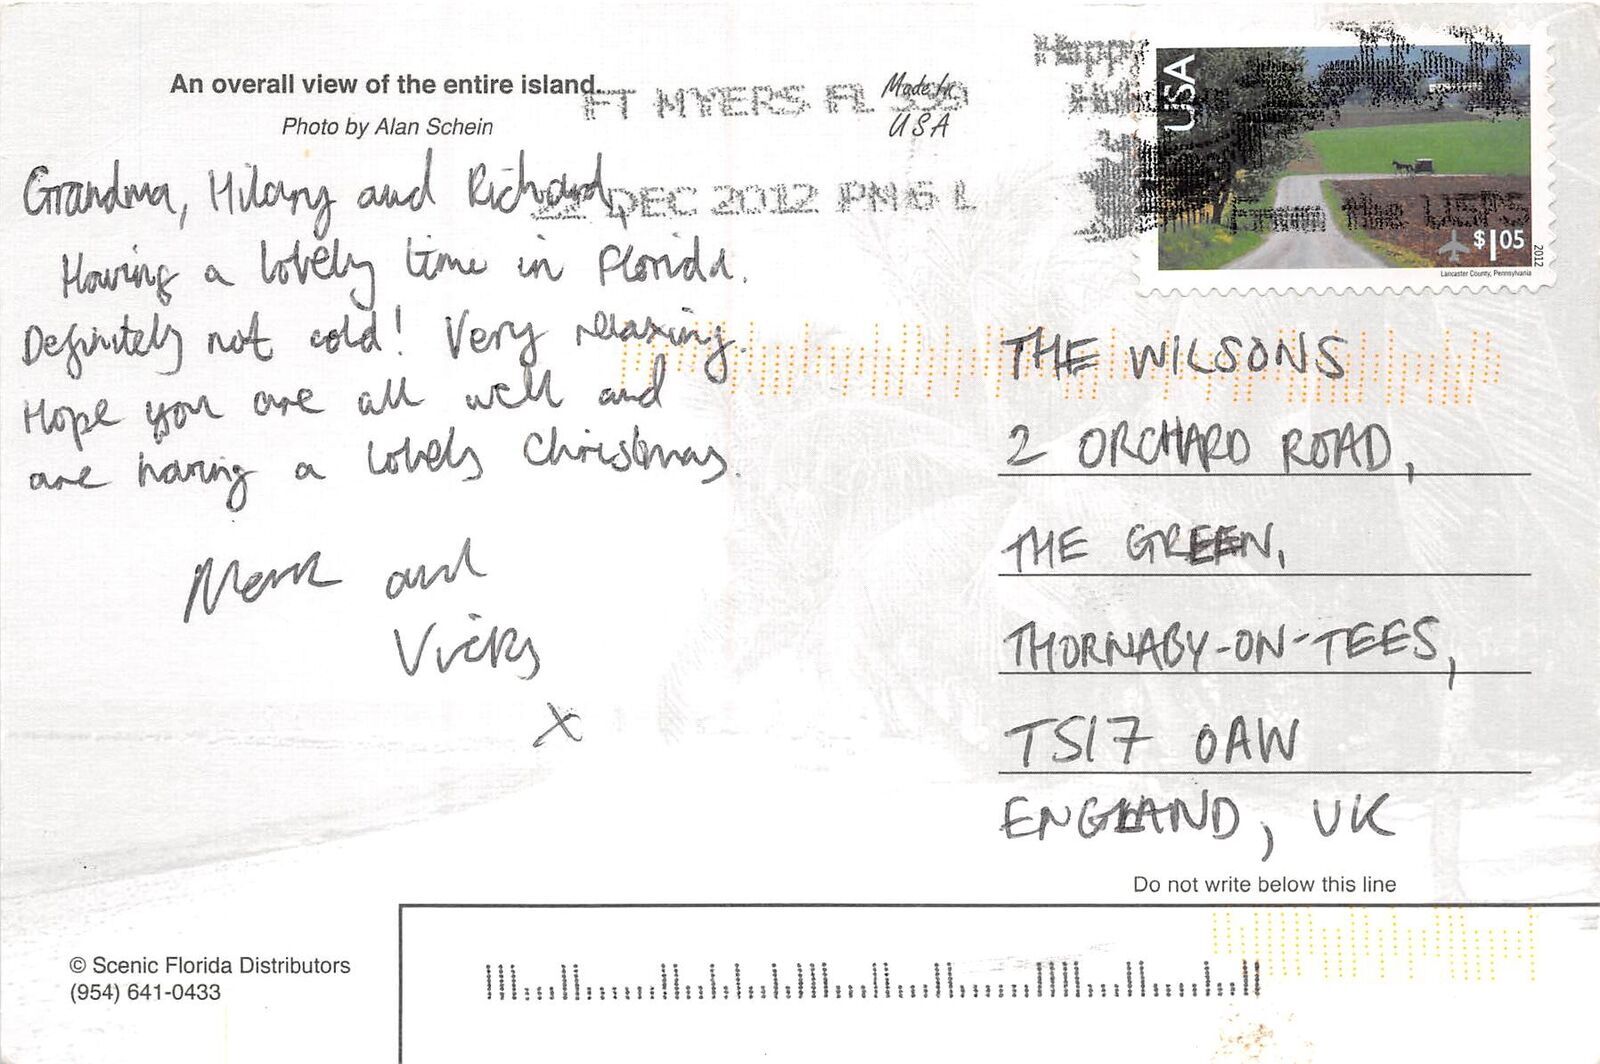 An overall view of the entire island.
Photo by Alan Schein
Made in
USA
FT MYERS FL 339
22 DEC 2012 PM 6 L
Happy
From the USPS
USA
$1.05
2012
Lancaster County, Pennsylvania
Grandma, Hilary and Richard,
Having a lovely time in Florida.
Definitely not cold! Very relaxing.
Hope you are all well and
are having a lovely Christmas.
Mark and
Vicky
x
THE WILSONS
2 ORCHARD ROAD,
THE GREEN,
THORNABY-ON-TEES,
TS17 0AW
ENGLAND, UK
Do not write below this line
© Scenic Florida Distributors
(954) 641-0433